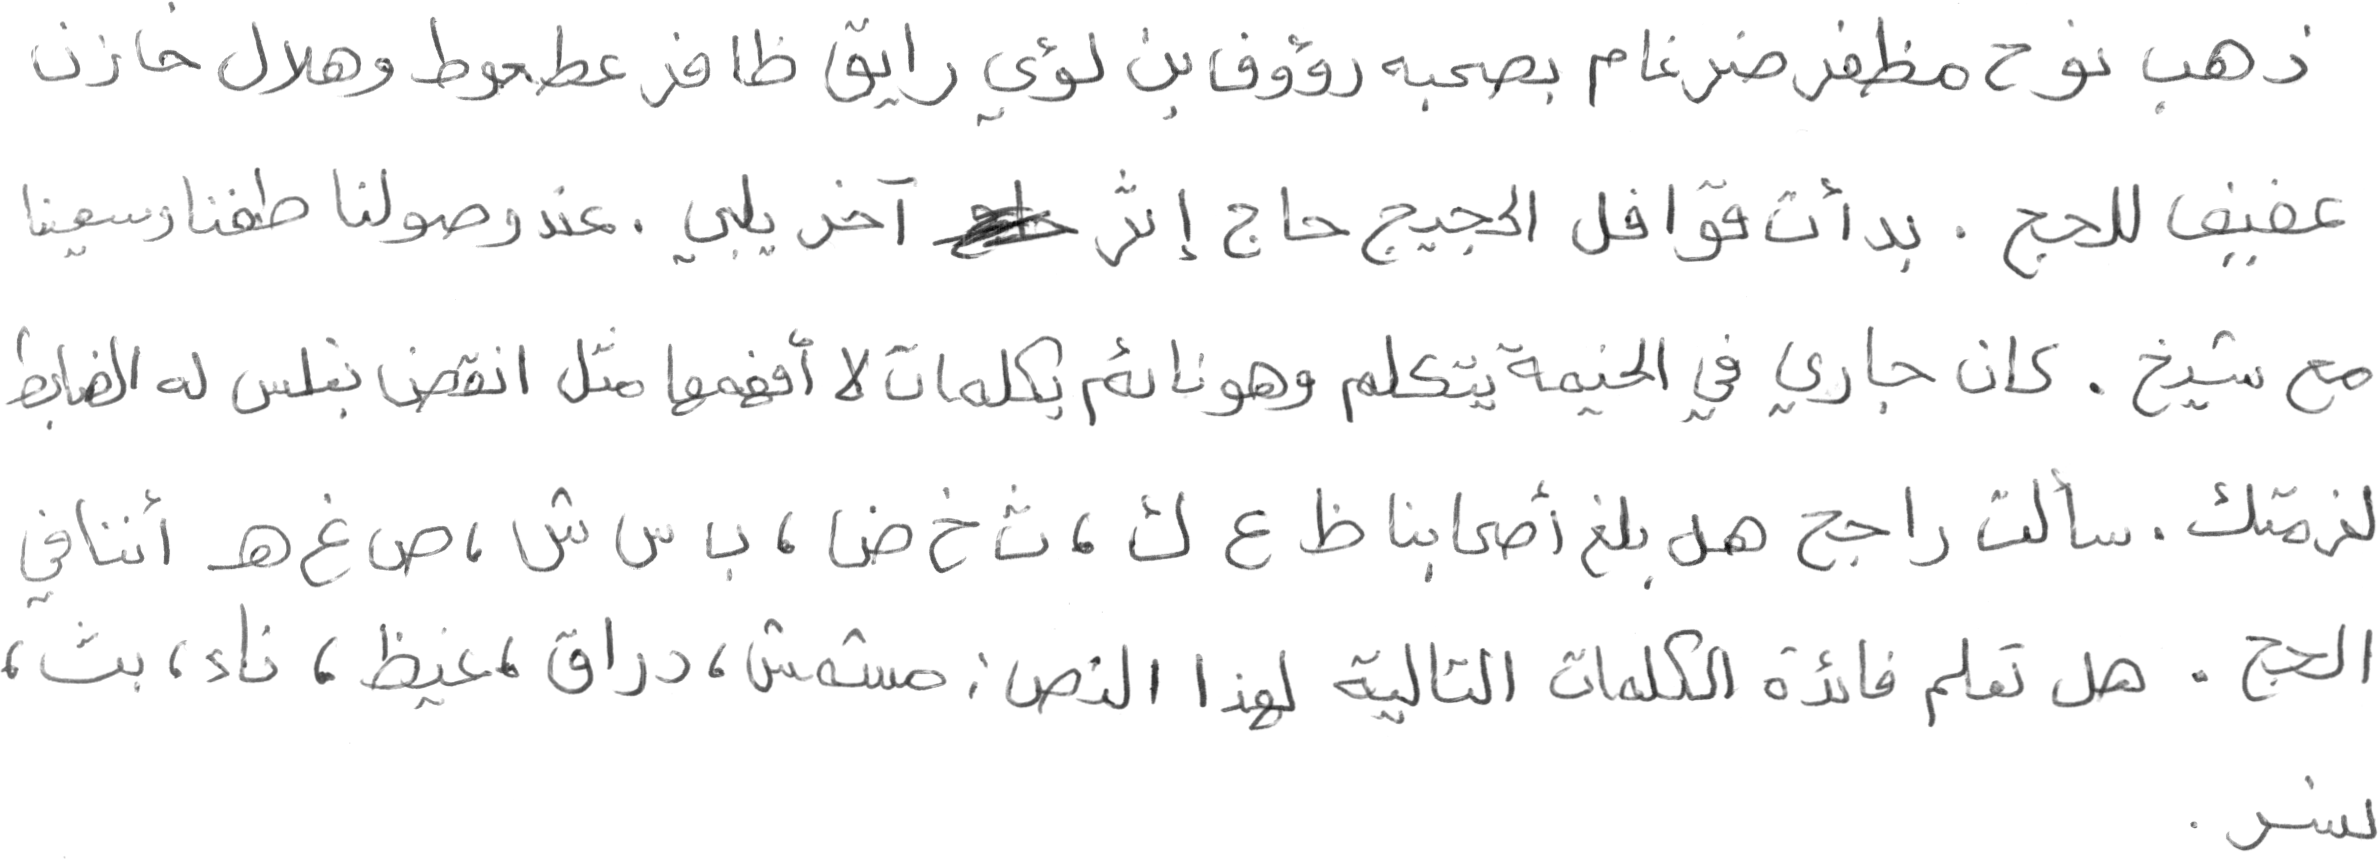 ذهب نوح مظفر ضرغام بصحبه رؤوف بن لؤي رايق ظافر عطعوط وهلال خازن
عفيف للحج . بدأت قوافل الحجيج حاج إثر آخر يلبي . عند وصولنا طفنا وسعينا
مع شيخ . كان جاري في الخيمة يتكلم وهو نائم بكلمات لا أفهمها مثل انقض بغلس له الضابط
لزمتك . سألت راجح هل بلغ أصحابنا ظ ع ك ، ث خ ض ، ب س ش ، ص غ هـ أننا في
الحج . هل تعلم فائدة الكلمات التالية لهذا النص : مشمش ، دراق ، غيظ ، ناء ، بث ،
نسر .